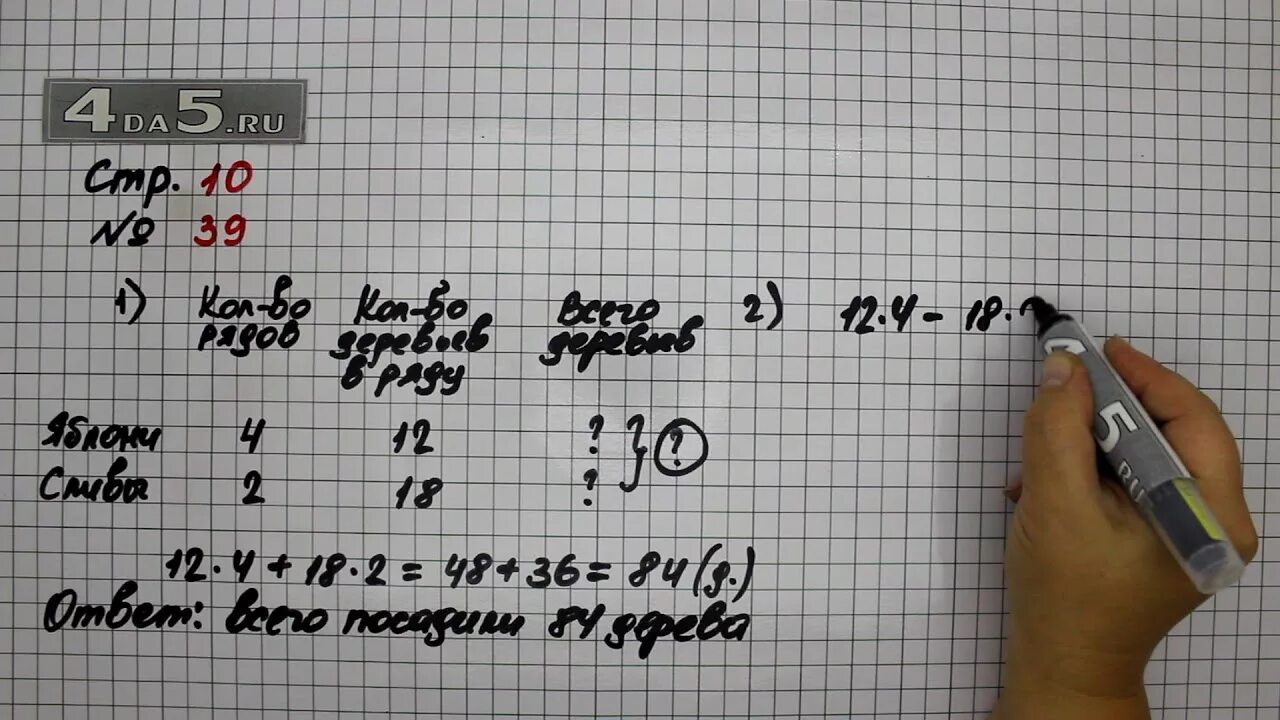 4DA5.RU
Стр. 10
№ 39
1) Кол-во рядов Кол-во деревьев в ряду Всего деревьев
Яблони 4 12 ?
Сливы 2 18 ? } ?
12·4 + 18·2 = 48 + 36 = 84 (д.)
Ответ: всего посадили 84 дерева
2) 12·4 - 18·
5 RU